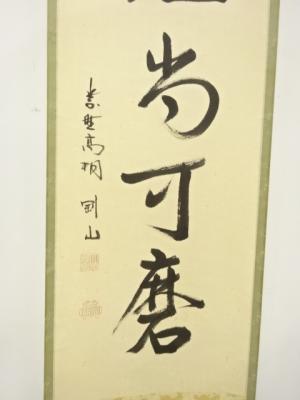 尚可磨
紫野高桐剛山